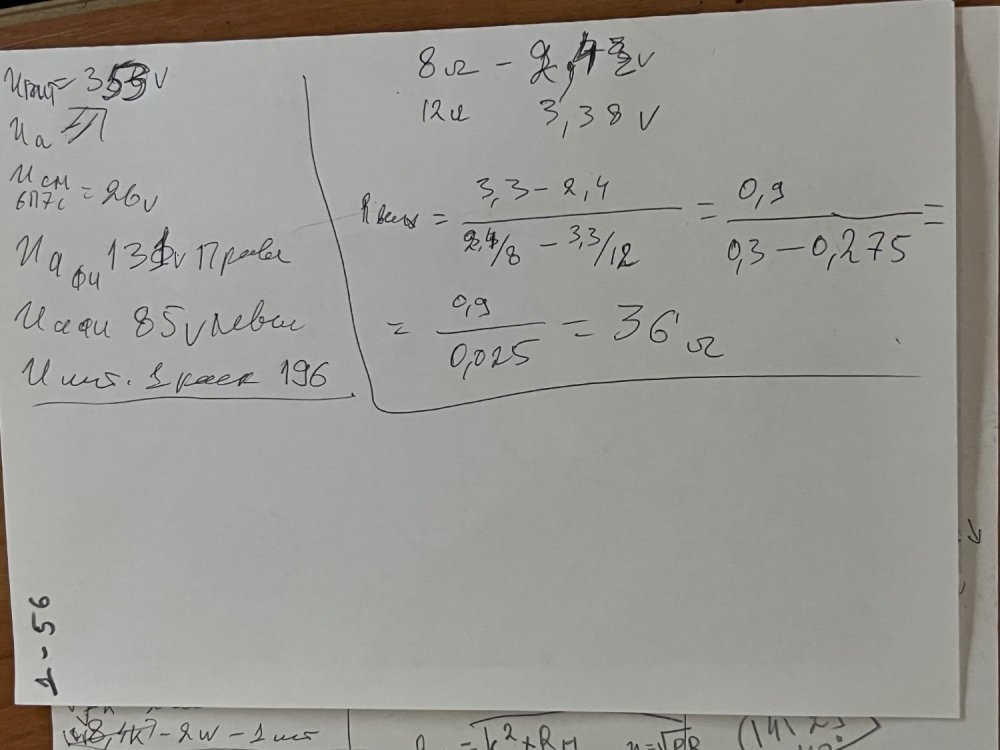 Uпит = 353 V
Uа
Uсм 6П7с = 26 V
Uа фи 131 V Правая
Uа фи 85 V левая
U пит. 1 каск 196
8Ω - 2,4 V
12Ω 3,38 V
Rвых = 3,3 - 2,4 / 2,4/8 - 3,3/12 = 0,9 / 0,3 - 0,275 =
= 0,9 / 0,025 = 36 Ω
1 - 56
8,4k - 2W - 1 шт